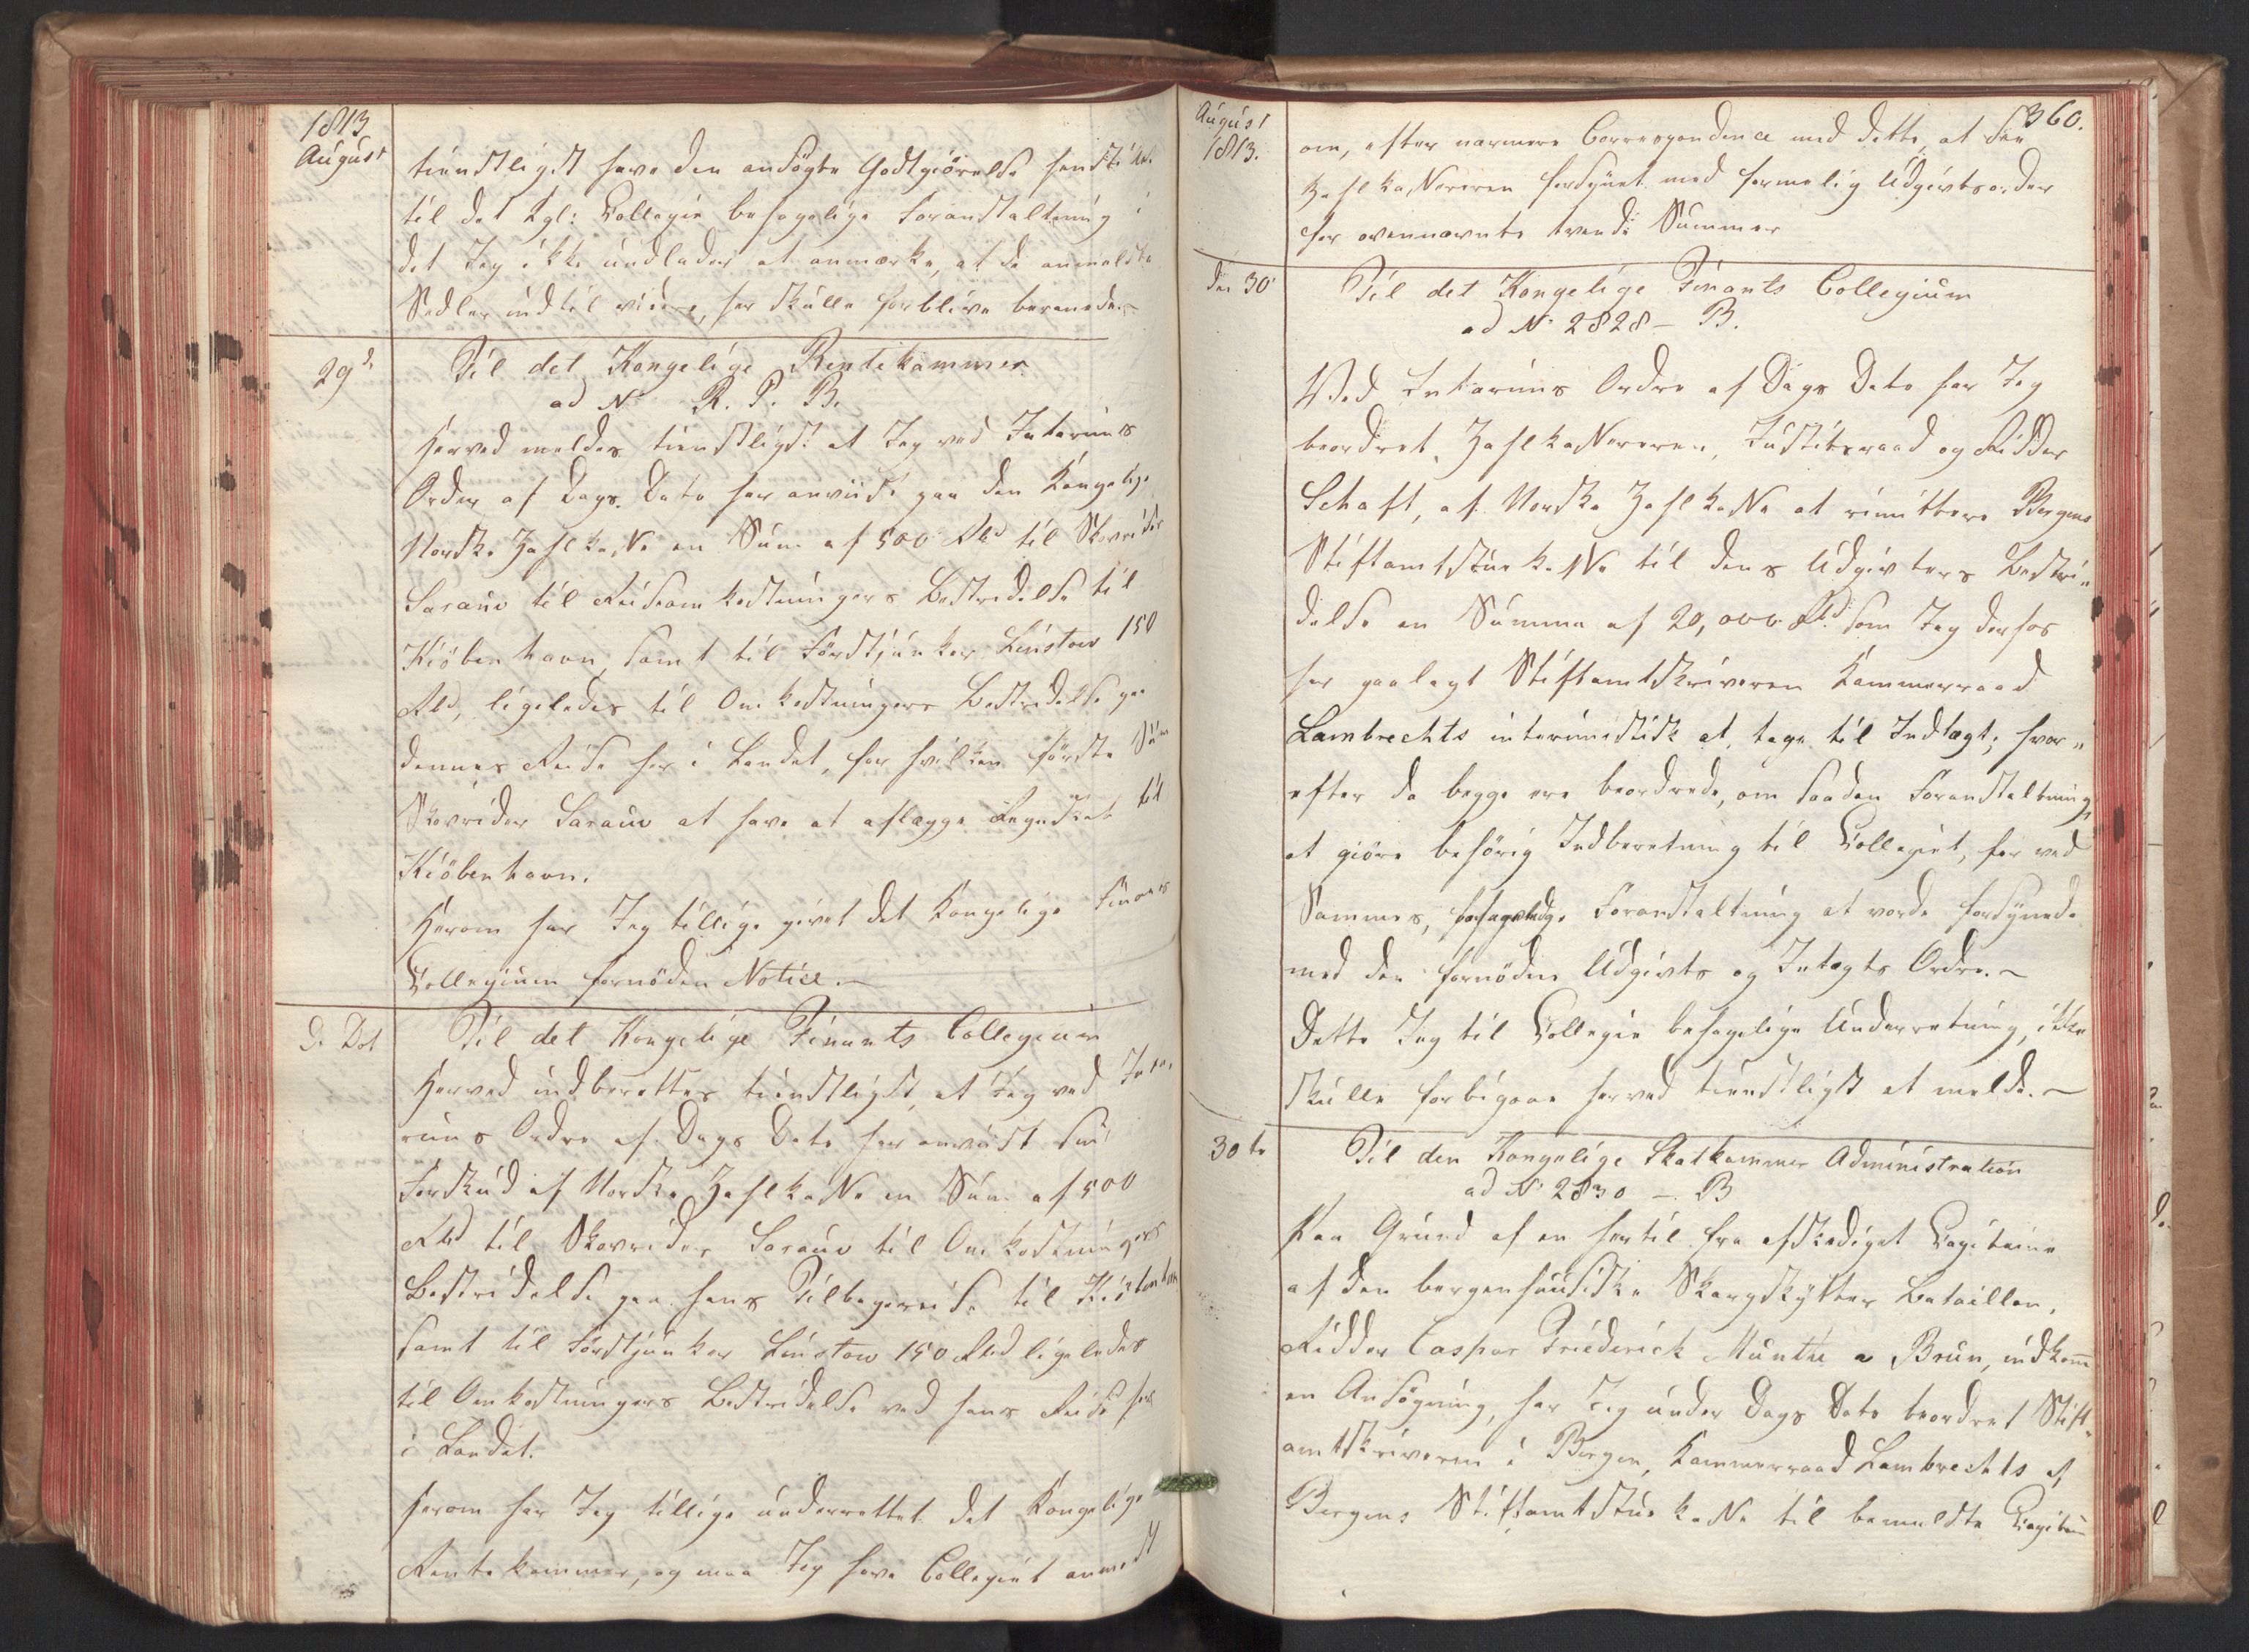 1813
August
tienstligst have den ansøgte Godtgiörelse henstillet
til det Kgl: Collegie behagelige Foranstaltning i
det Jeg ikke undlader at anmærke, at de anmeldte
Sedler indtil videre, her skulle forblive beroende.
29d
Til det Kongelige Rentekammer
ad No R. P. B.
Herved meldes tienstligst at Jeg ved Interims
Ordre af Dags Dato har anviist paa den Kongelige
Norske Zahlkasse en Sum af 500 Rbd til Skovrider
Sarauw til Reiseomkostningers Bestridelse til
Kiöbenhavn, samt til Forstjunker Linstow 150
Rbd, ligeledes til Omkostningers Bestridelse paa
dennes Reise her i Landet, for hvilken første Sum
Skovrider Sarauw at have at aflægge Regnskab til
Kiöbenhavn.
Herom har Jeg tillige givet det Kongelige Finants
Collegium fornöden Notice.
D. Dat
Til det Kongelige Finants Collegium
Herved indberettes tienstligst, at Jeg ved Inte-
rims Ordre af Dags Dato har anviist som
Forskud af Norske Zahlkasse en Sum af 500
Rbd til Skovrider Sarauw til Omkostningers
Bestridelse paa hans Tilbagereise til Kiöbenhavn
samt til Forstjunker Linstow 150 Rbd ligeledes
til Omkostningers Bestridelse ved hans Reise her
i Landet.
herom har Jeg tillige underrettet det Kongelige
Rentekammer, og maa Jeg have Collegiet anmodet
August
1813.
360.
om, efter nærmere Correspondence med dette, at see
Zahlkasereren forsynet med formelig Udgivtsorder
for ovennævnte tvende Summer
Den 30'
Til det Kongelige Finants Collegium
ad No 2828 - B.
Ved Interims Ordre af Dags Dato har Jeg
beordret Zahlkassereren, Justitsraad og Ridder
Schaft, af Norske Zahlkasse at rimittere Bergens
Stiftamtstue Kasse til dens Udgivters Bestri-
delse en Summa af 20,000 Rbd som Jeg derhos
har paalagt Stiftamtskriveren Kammerraad
Lambrechts interimistisk at tage til Indtægt; hvor-
efter da begge ere beordrede, om saadan Foranstaltning,
at giöre behörig Indberetning til Collegiet, for ved
Sammes, behagelige Foranstaltning at vorde forsynede
med den fornödne Udgivts og Intægts Ordre.
Dette Jeg til Collegie behagelige Underretning, ikke
skulle forbigaae herved tienstligst at melde.
30te
Til den Kongelige Skatkammer Administration
ad No 2830 - B
Paa Grund af en hertil fra afskediget Capitaine
af den bergenhuusiske Skarpskytter Bataillon,
Ridder Caspar Friederich Munthe a Brun, indkom-
en Ansögning, har Jeg under Dags Dato beordret Stift-
amtskriveren i Bergen, Kammerraad Lambrechts af
Bergens Stiftamtstue Kasse til bemeldte Capitain